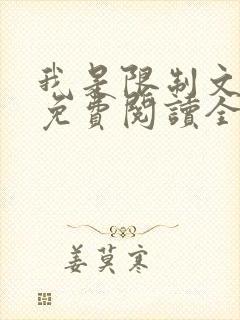 我是限制文
免費閱讀全
姜莫寒